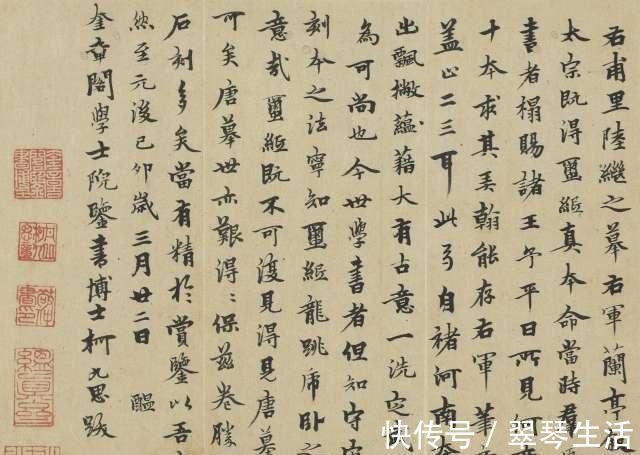 右甫里陸繼之摹右軍蘭亭
太宗既得璽紙真本命當時羣
書者搨賜諸王予平日所見何
十本求其弄翰能存右軍筆
蓋止二三耳此弓自褚河南
出飄撇蘊藉大有古意一洗定武
為可尚也今世學書者但知守定
刻本之法寧知璽紙龍跳虎臥之
意哉璽紙既不可復見得見唐摹
可矣唐摹世亦艱得得保茲卷勝
石刻多矣當有精於賞鑒以吾
然至元後己卯歲三月廿二日 醖
奎章閣學士院鑒書博士柯九思跋
快传号／翠琴生活